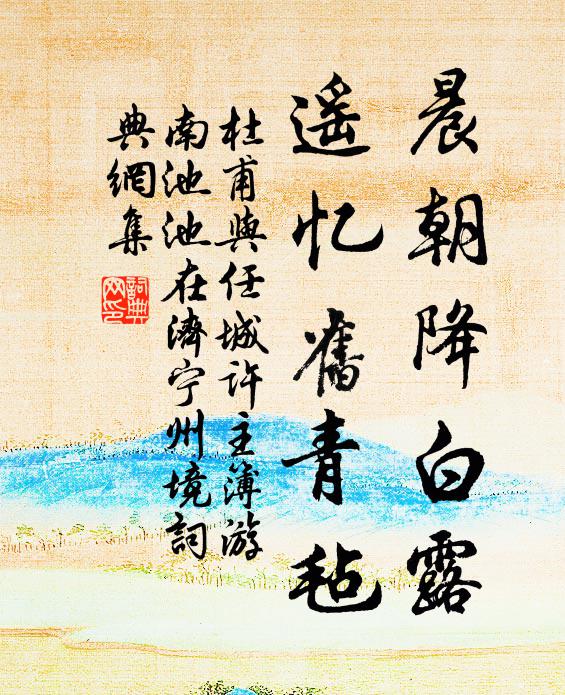 晨朝降白露
遥忆舊青毡
杜甫與任城许主簿游
南池池在濟宁州境詞
典網集
詞典
网印